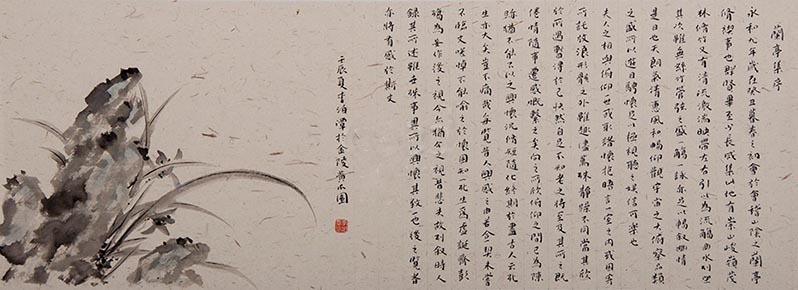 蘭亭集序
永和九年歲在癸丑暮春之初會於會稽山陰之蘭亭
脩禊事也群賢畢至少長咸集此地有崇山峻嶺茂
林脩竹又有清流激湍映帶左右引以為流觴曲水列坐
其次雖無絲竹管弦之盛一觴一詠亦足以暢敘幽情
是日也天朗氣清惠風和暢仰觀宇宙之大俯察品類
之盛所以遊目騁懷足以極視聽之娛信可樂也
夫人之相與俯仰一世或取諸懷抱晤言一室之內或因寄
所託放浪形骸之外雖趣舍萬殊靜躁不同當其欣
於所遇暫得於己快然自足不知老之將至及其所之既
倦情隨事遷感慨繫之矣向之所欣俯仰之間已為陳
跡猶不能不以之興懷況脩短隨化終期於盡古人云死
生亦大矣豈不痛哉每覽昔人興感之由若合一契未嘗
不臨文嗟悼不能喻之於懷固知一死生為虛誕齊彭
殤為妄作後之視今亦猶今之視昔悲夫故列敘時人
錄其所述雖世殊事異所以興懷其致一也後之覽者
亦將有感於斯文
壬辰夏李泊於金陵黃瓜園